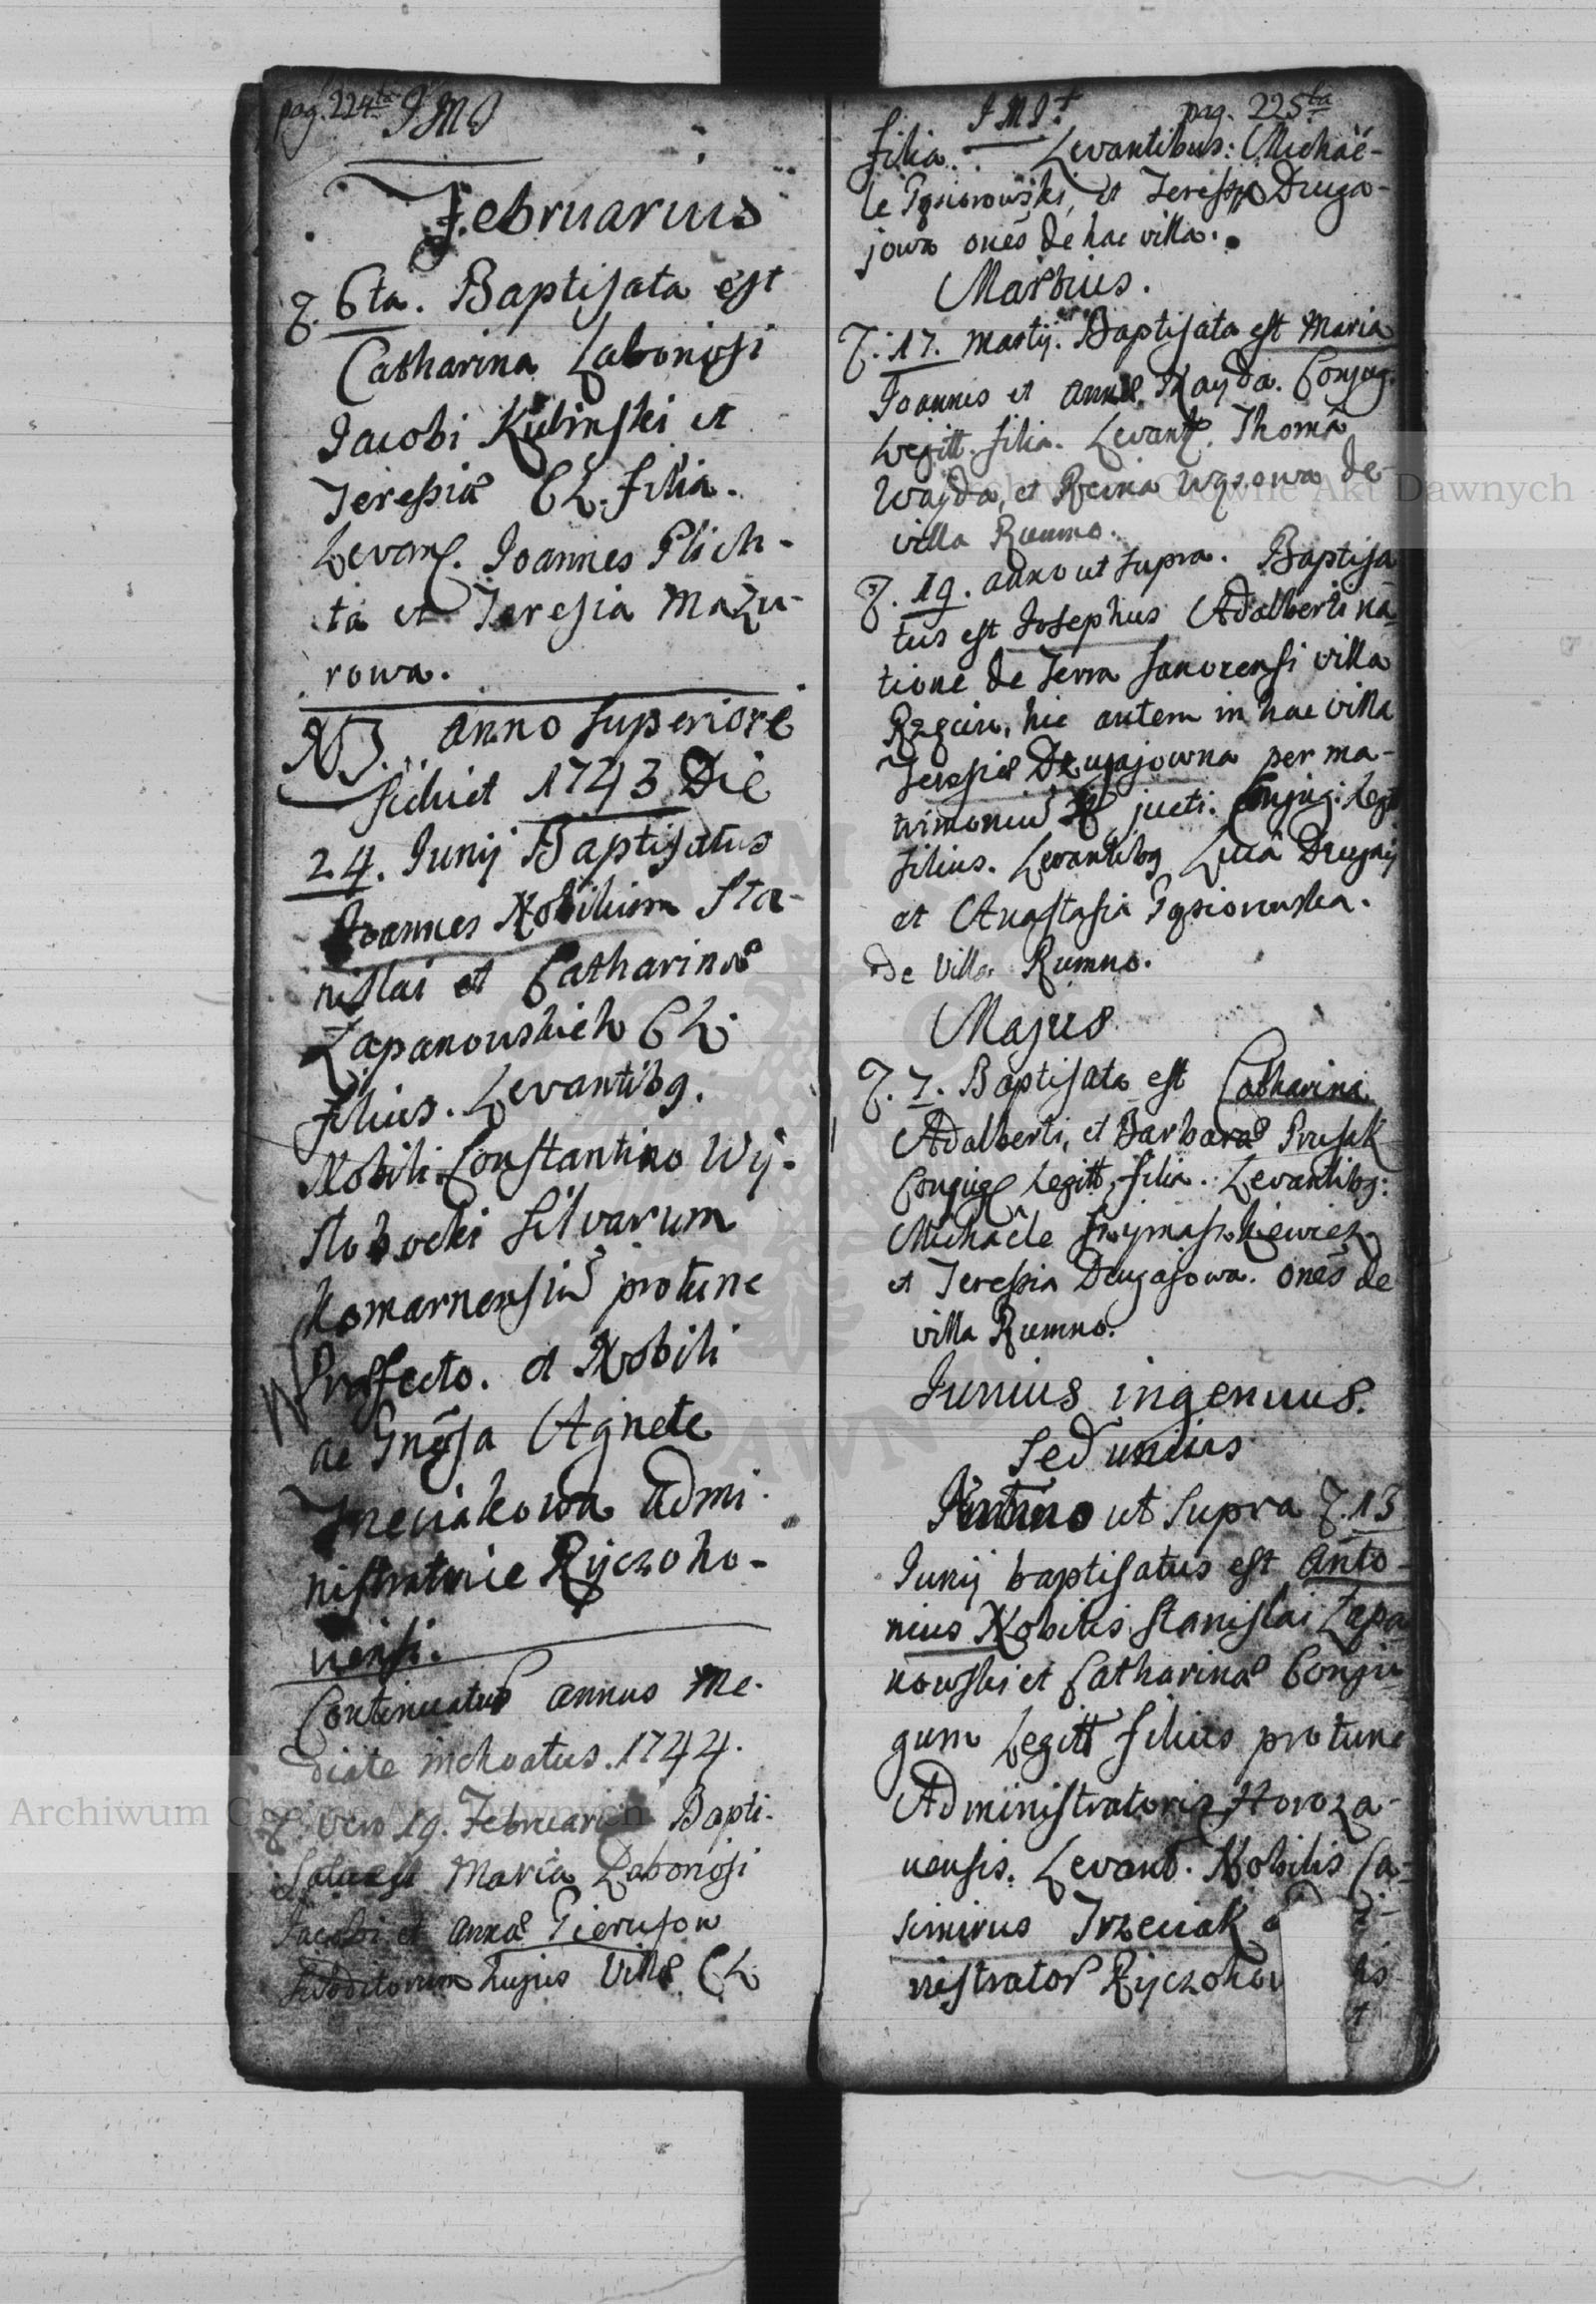 pag. 224ta IMJ
Februarius
D. 6ta. Baptisata est
Catharina Laboriosi
Jacobi Kubinski et
Teressiæ CL. filia.
Levant. Joannes Plich-
ta et Teresia Mazu-
rowa.
NB. anno superiore
scilicet 1743 Die
24. Junij Baptisatus
Joannes Nobilium Sta-
nislai et Catharinæ
Łapanowskich CL.
filius. Levantibg.
Nobili Constantino Wy-
slobocki silvarum
Komarnensiu protunc
Præfecto. et Nobili
ac Gnosa Agnete
Trzeciakowa admi-
nistratrice Ryczoho-
vensi.
Continuatur annus me-
diate inchoatus. 1744.
D. vero 19. Februarii Bapti-
sata est Maria Laboriosi
Jacobi et Annæ Pierusow
subditorum hujus Villæ CL
IMJ. pag. 225ta
filia. Levantibus: Michaë-
le Gąsiorowski, et Teressa Druga-
jowa onēs de hac villa.
Martius.
D. 17. Martij. Baptisata est Maria
Joannis et Annæ Hayda. Conjug.
Legitt. filia. Levant. Thomâ
Wayda, et Reina Wąsowa de
villa Rumno.
D. 19. anno ut supra. Baptisa
tus est Josephus Adalberti na
tione de Terra Sanocensi villa
hic autem in hac villa
Teresiæ Drugajowna per ma-
trimoniu jucti. Conjug. Legitt
filius. Levantibg Lucâ Drugaij
et Anastasia Gąsiorowska.
de Villa Rumno.
Majus
D. 7. Baptisata est Catharina
Adalberti, et Barbaræ Prusak
Conjug Legitt. filia. Levantibg:
Michaële Szymaszkiewicz
et Teressia Drugajowa. onēs de
villa Rumno.
Junius ingenuus.
sed unius
Anno ut supra D. 13
Junij baptisatus est Anto-
nius Nobilis Stanislai Łapa
nowski et Catharinæ Conju
gum Legitt filius protunc
Administratoris Horoza-
nensis. Levant. Nobilis Ca-
simirus Trzeciak
nistrator Ryczohov
Archiwum Główne Akt Dawnych